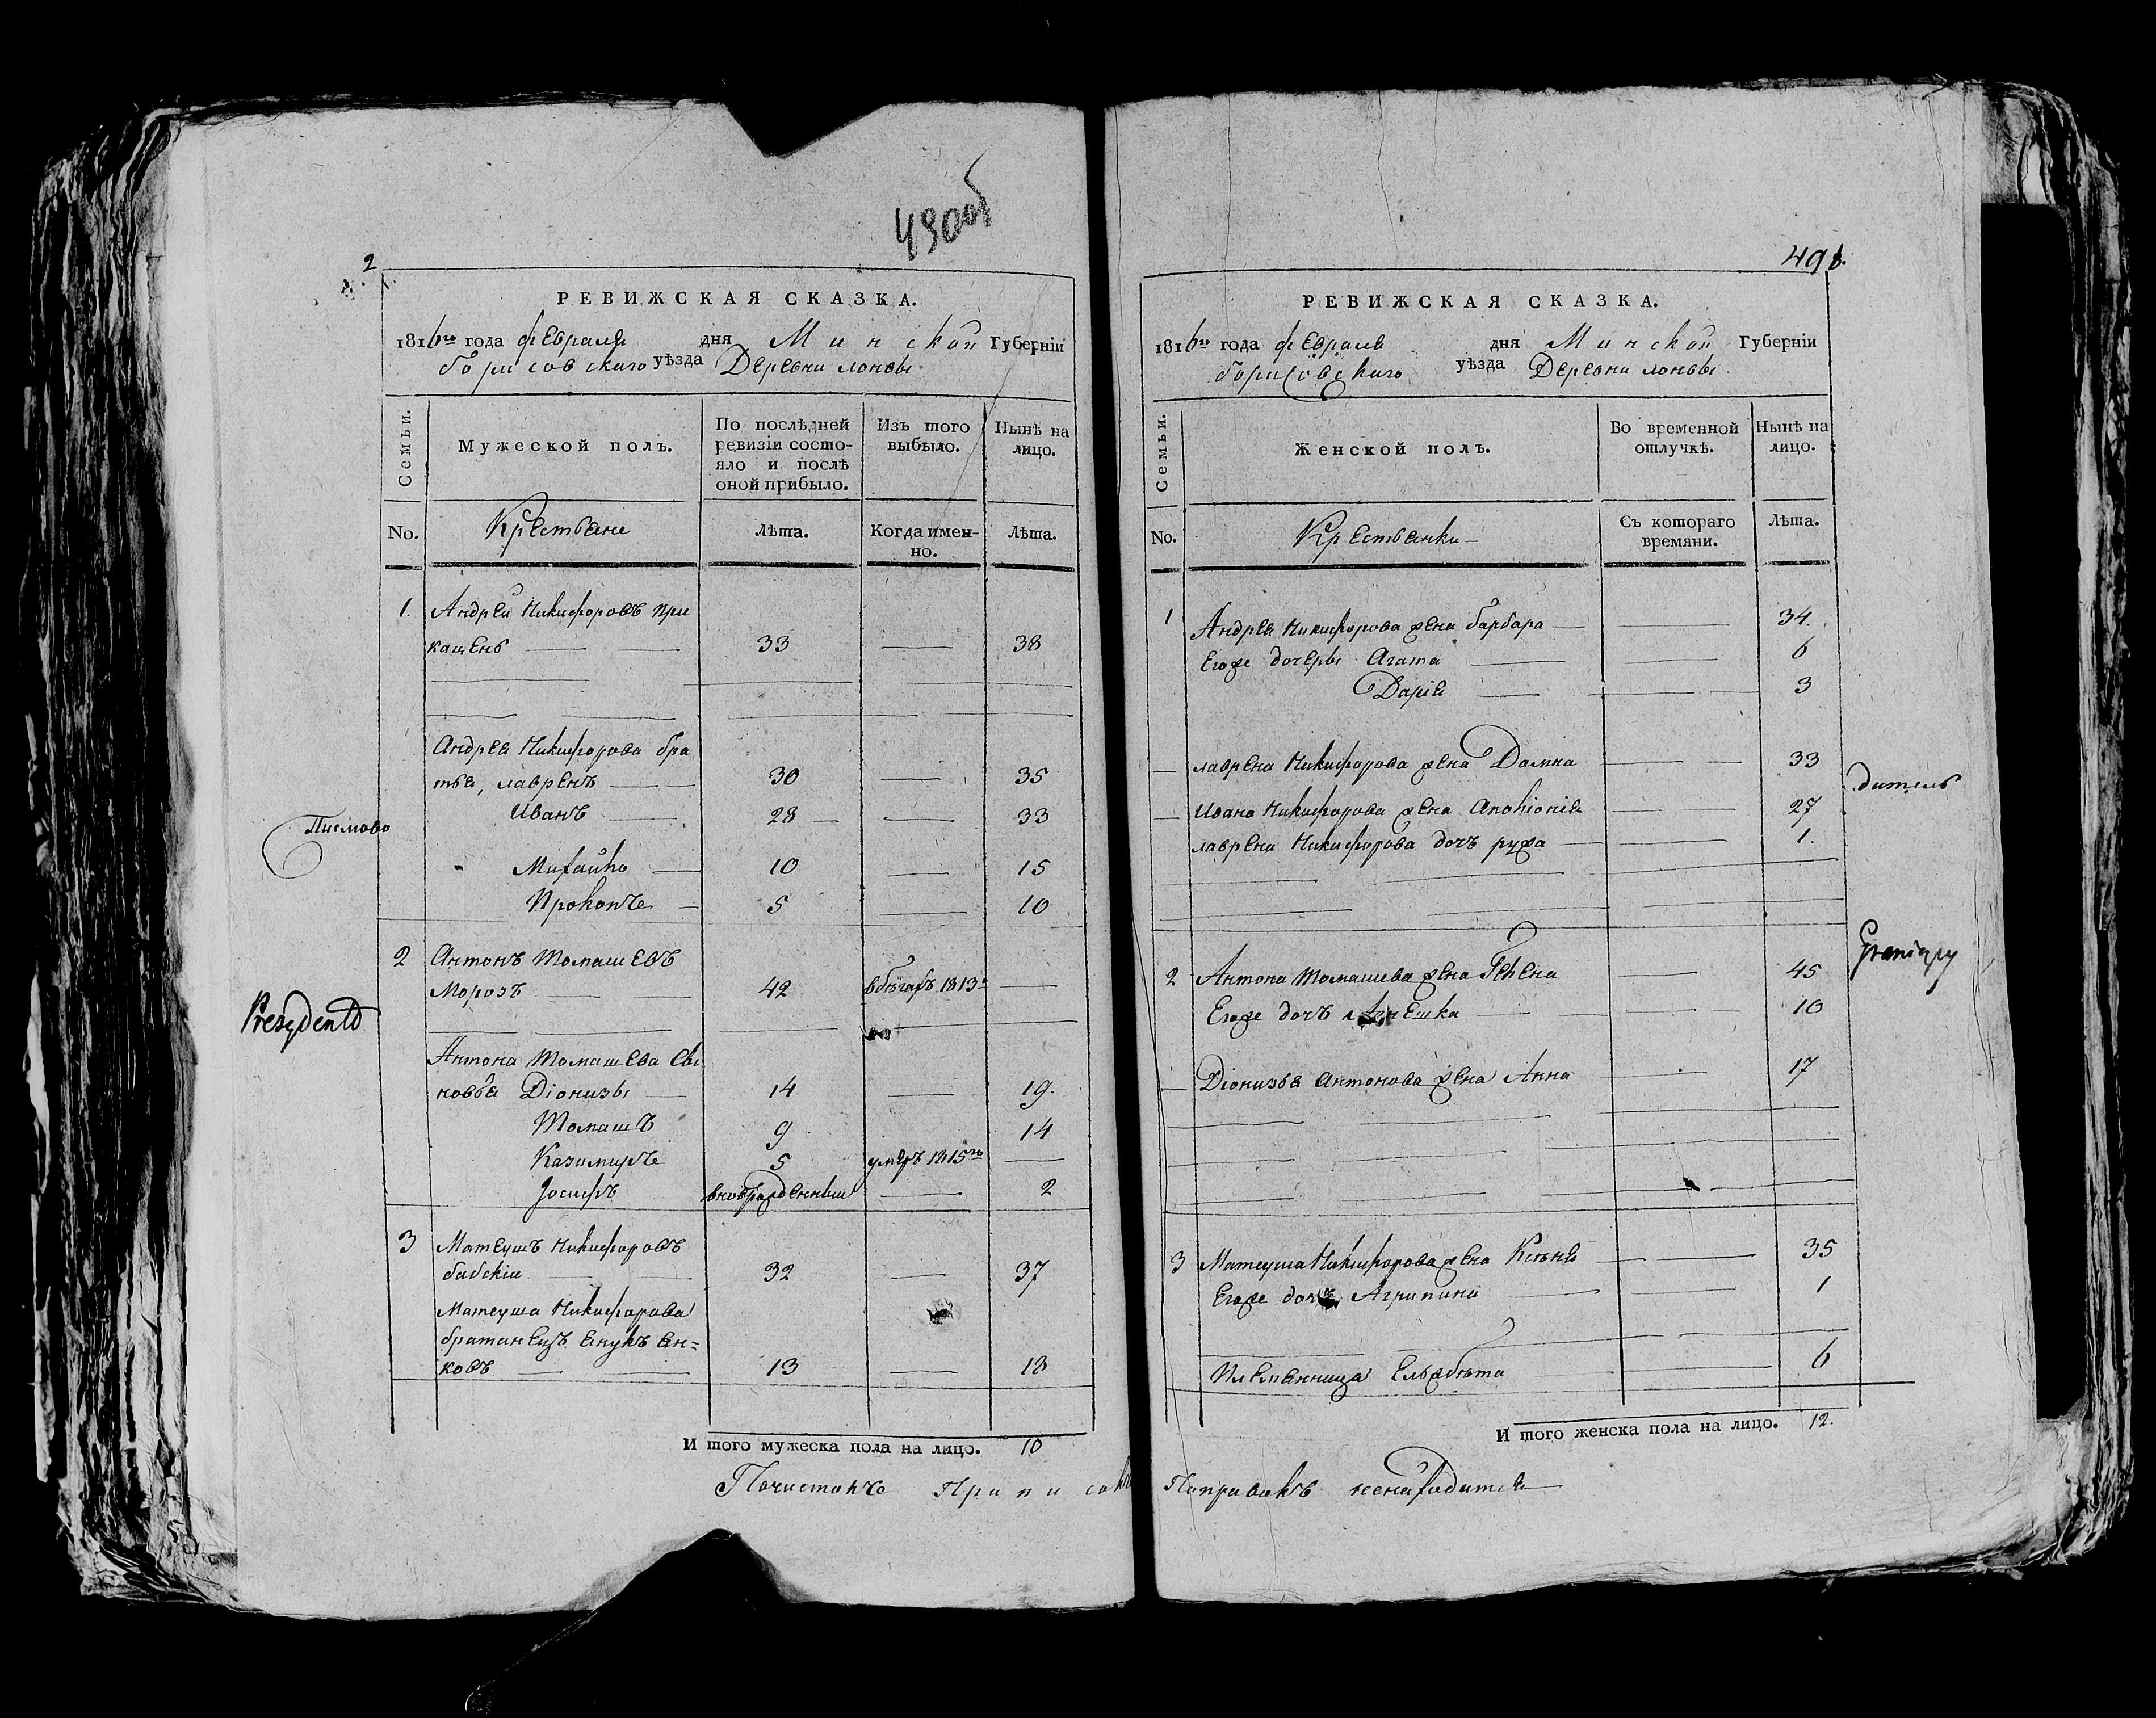 2
490об
РЕВИЖСКАЯ СКАЗКА.
1816го года февраля дня Минской Губерніи
борисовскаго уѣзда Деревни лонвы
Семьи.
Мужеской полъ.
По послѣдней ревизіи состояло и послѣ оной прибыло.
Изъ того выбыло.
Нынѣ на лицо.
No.
Крестьяне
Лѣта.
Когда именно.
Лѣта.
1. Андрей Никифоровъ При
кащень 33 38
Андрея Никифорова бра
тья, лавренъ 30 35
Иванъ 28 33
Михайло 10 15
Прокопъ 5 10
Писмово
2 Антонъ Томашевъ
Морозъ 42 вбѣгахъ 1813го
Prezydent
Антона Томашева сы
новья Діонизы 14 19.
Томашъ 9 14
Казимиръ 5 умеръ 1815го
Іосифъ вноврожденный 2
3 Матеушъ Никифоровъ
бабскіи 32 37
Матеуша Никифорова
братанецъ Янукъ Ян=
ковъ 13 18
И того мужеска пола на лицо. 10
Почистокъ Приписокъ
491.
РЕВИЖСКАЯ СКАЗКА.
1816го года февраля дня Минской Губерніи
борисовскаго уѣзда Деревни лонвы
Семьи.
Женской полъ.
Во временной отлучкѣ.
Нынѣ на лицо.
No.
Крестьянки
Съ котораго времяни.
Лѣта.
1 Андрея Никифорова жена барбара 34.
Егоже дочеры Агата 6
Дарія 3
лаврена Никифорова жена Домна 33
дитель
Ивана Никифорова жена Аполіонія 27
лаврена Никифорова дочъ ружа 1.
2 Антона Томашева жена Гелена 45
Егоже дочъ Агнешка 10
Діонизья Антонова жена Анна 17
3 Матеуша Никифорова жена Ксеня 35
Егоже дочъ Агрипина 1
Племянница Ельжбѣта 6
И того женска пола на лицо. 12.
Поправокъ ненаходится